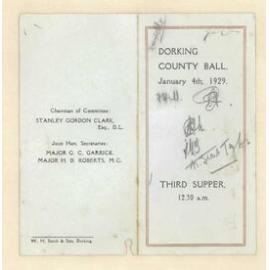 Chairman of Committee:
STANLEY GORDON CLARK,
Esq., D.L.
Joint Hon. Secretaries:
MAJOR G. C. GARRICK.
MAJOR H. D. ROBERTS, M.C.
DORKING
COUNTY BALL.
January 4th, 1929.
THIRD SUPPER,
12.30 a.m.